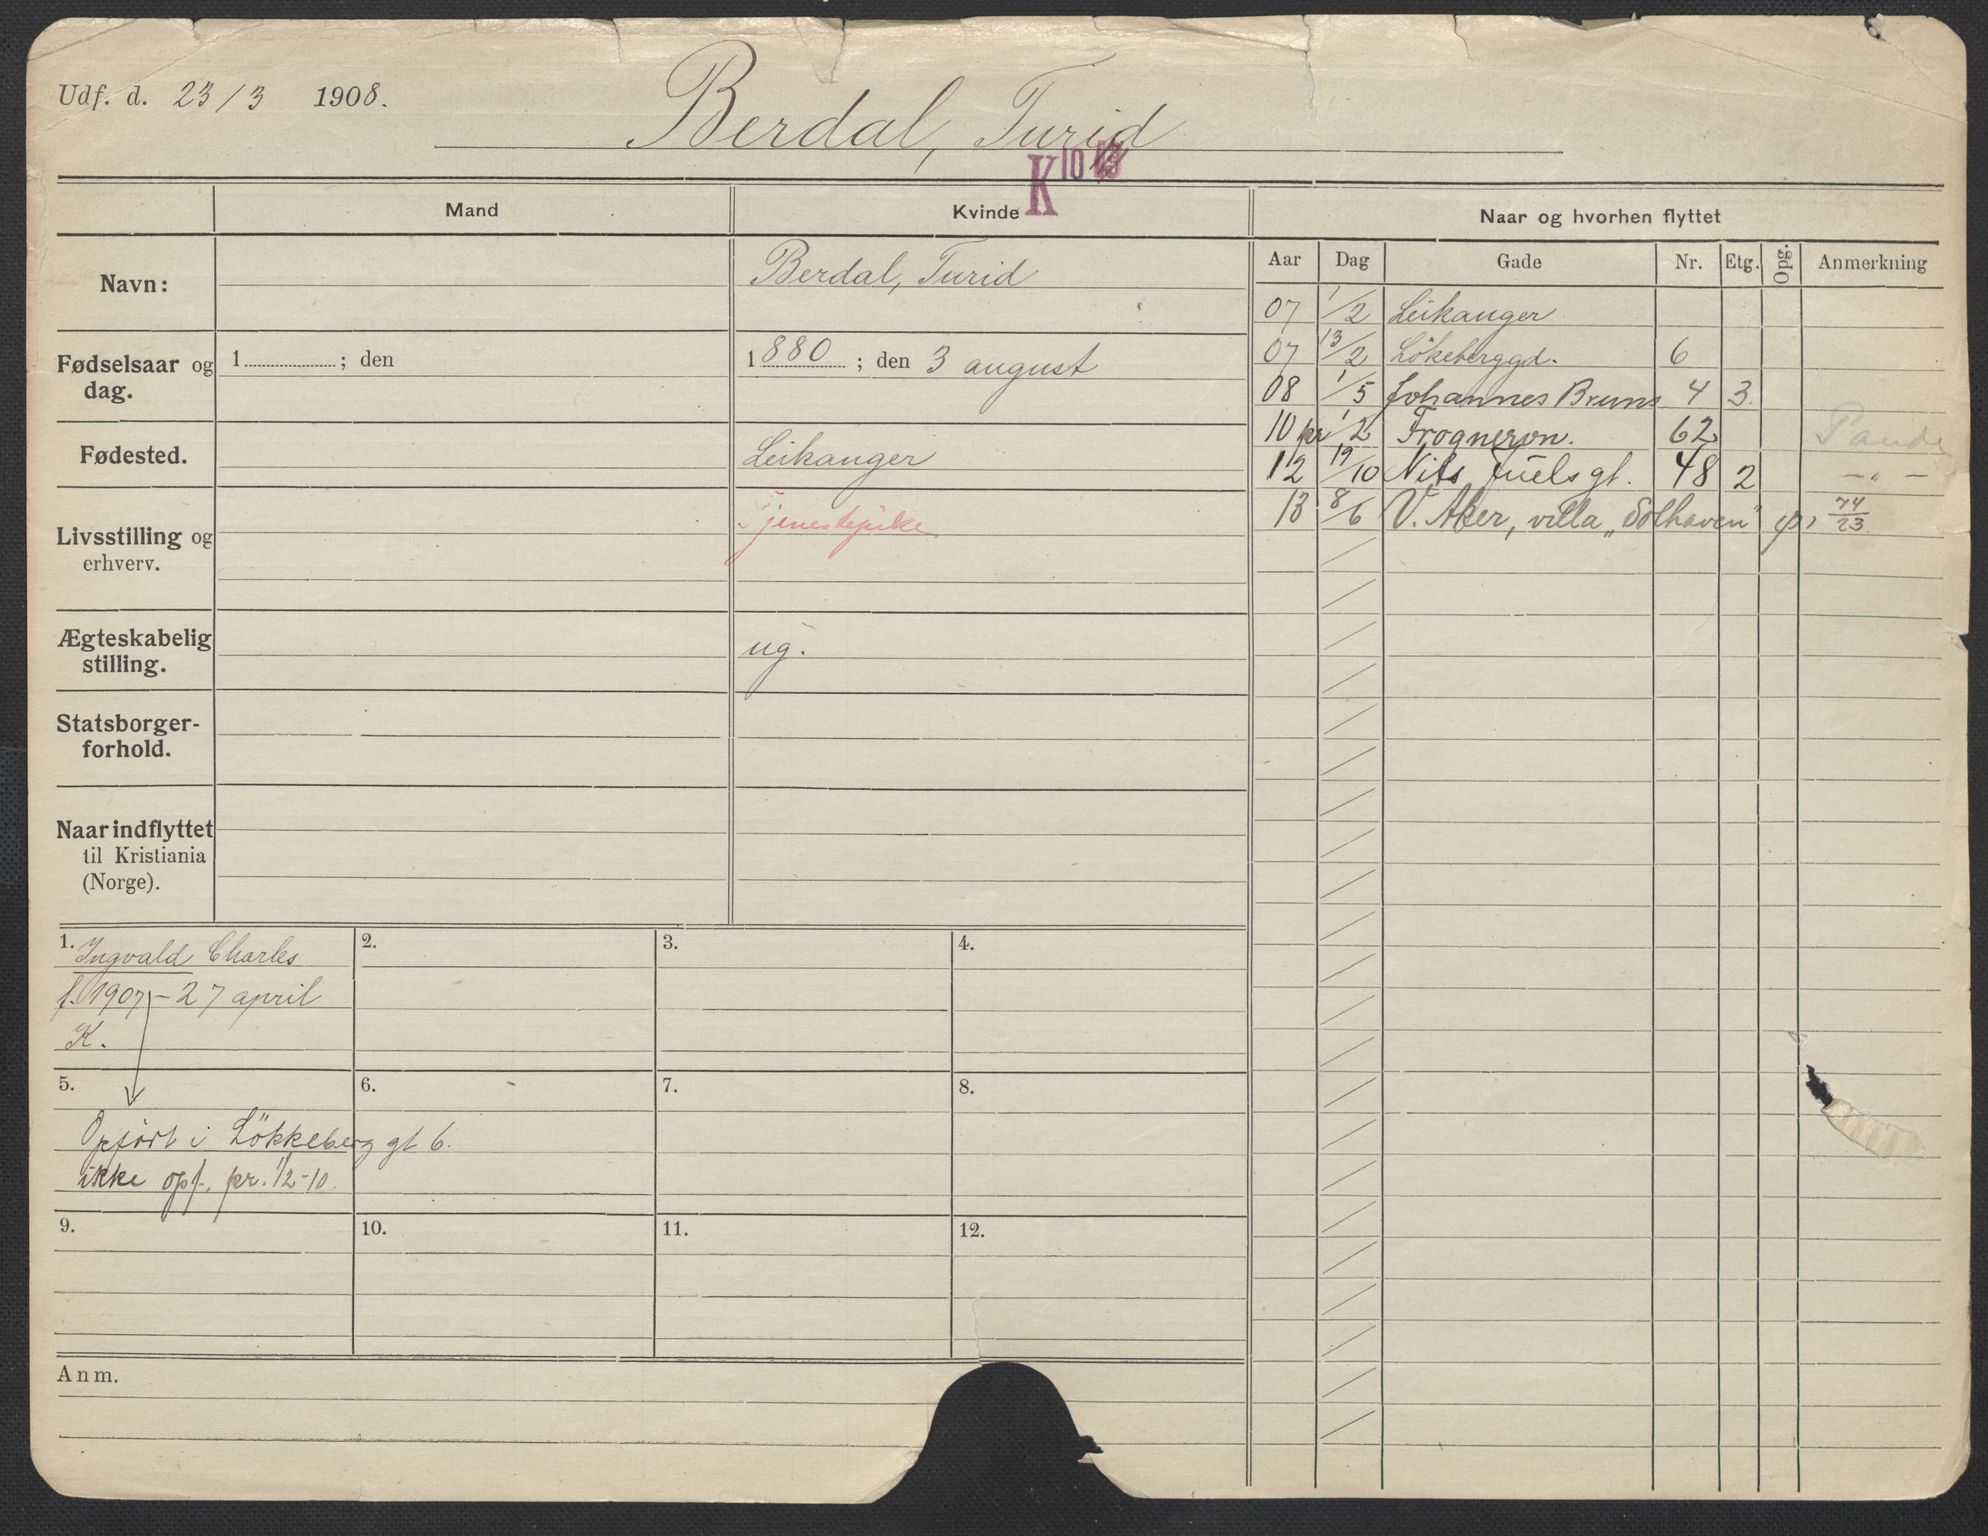 Udf. d. 23/3 1908.
Berdal, Turid
K 10
Mand
Kvinde
Naar og hvorhen flyttet
Navn:
Berdal, Turid
Fødselsaar og
dag.
1 ; den
1880 ; den 3 august
Fødested.
Leikanger
Livsstilling og
erhverv.
Tjenestepike
Ægteskabelig
stilling.
ug.
Statsborger-
forhold.
Naar indflyttet
til Kristiania
(Norge).
Aar Dag Gade Nr. Etg. Opg. Anmerkning
07 1/2 Leikanger
07 13/2 Lökeberggd. 6
08 1/5 Johannes Bruns 4 3.
10 pr 1/2 Frognervn. 62
12 19/10 Nils Juels gt. 48 2 -„-
13 8/6 V. Aker, villa „Solhaven" 74/23
1. Ingvald Charles
f. 1907 - 27 april
K.
2.
3.
4.
5.
Opført i Lökkeberg gt 6.
ikke opf. pr. 1/2-10.
6.
7.
8.
9.
10.
11.
12.
Anm.